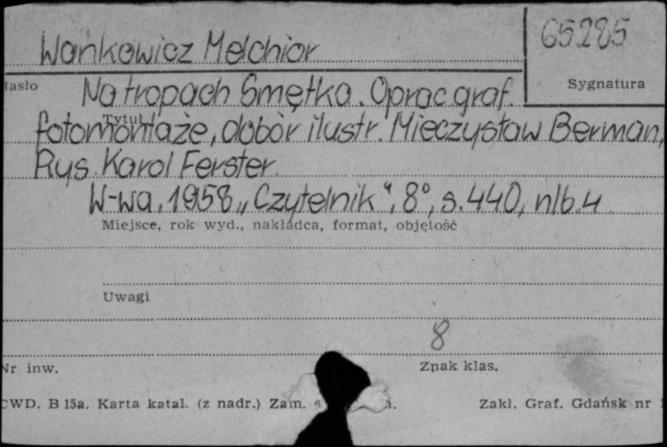 65285
Wańkowicz Melchior
Hasło
Sygnatura
Na tropach Smętka. Oprac. graf.
Tytuł
fotomontaże, dobór ilustr. Mieczysław Berman,
Rys. Karol Ferster.
W-wa, 1958, „Czytelnik", 8°, s. 440, nlb. 4.
Miejsce, rok wyd., nakładca, format, objętość
Uwagi
8
Nr inw.
Znak klas.
CWD. B 15a. Karta katal. (z nadr.) Zam.
Zakł. Graf. Gdańsk nr